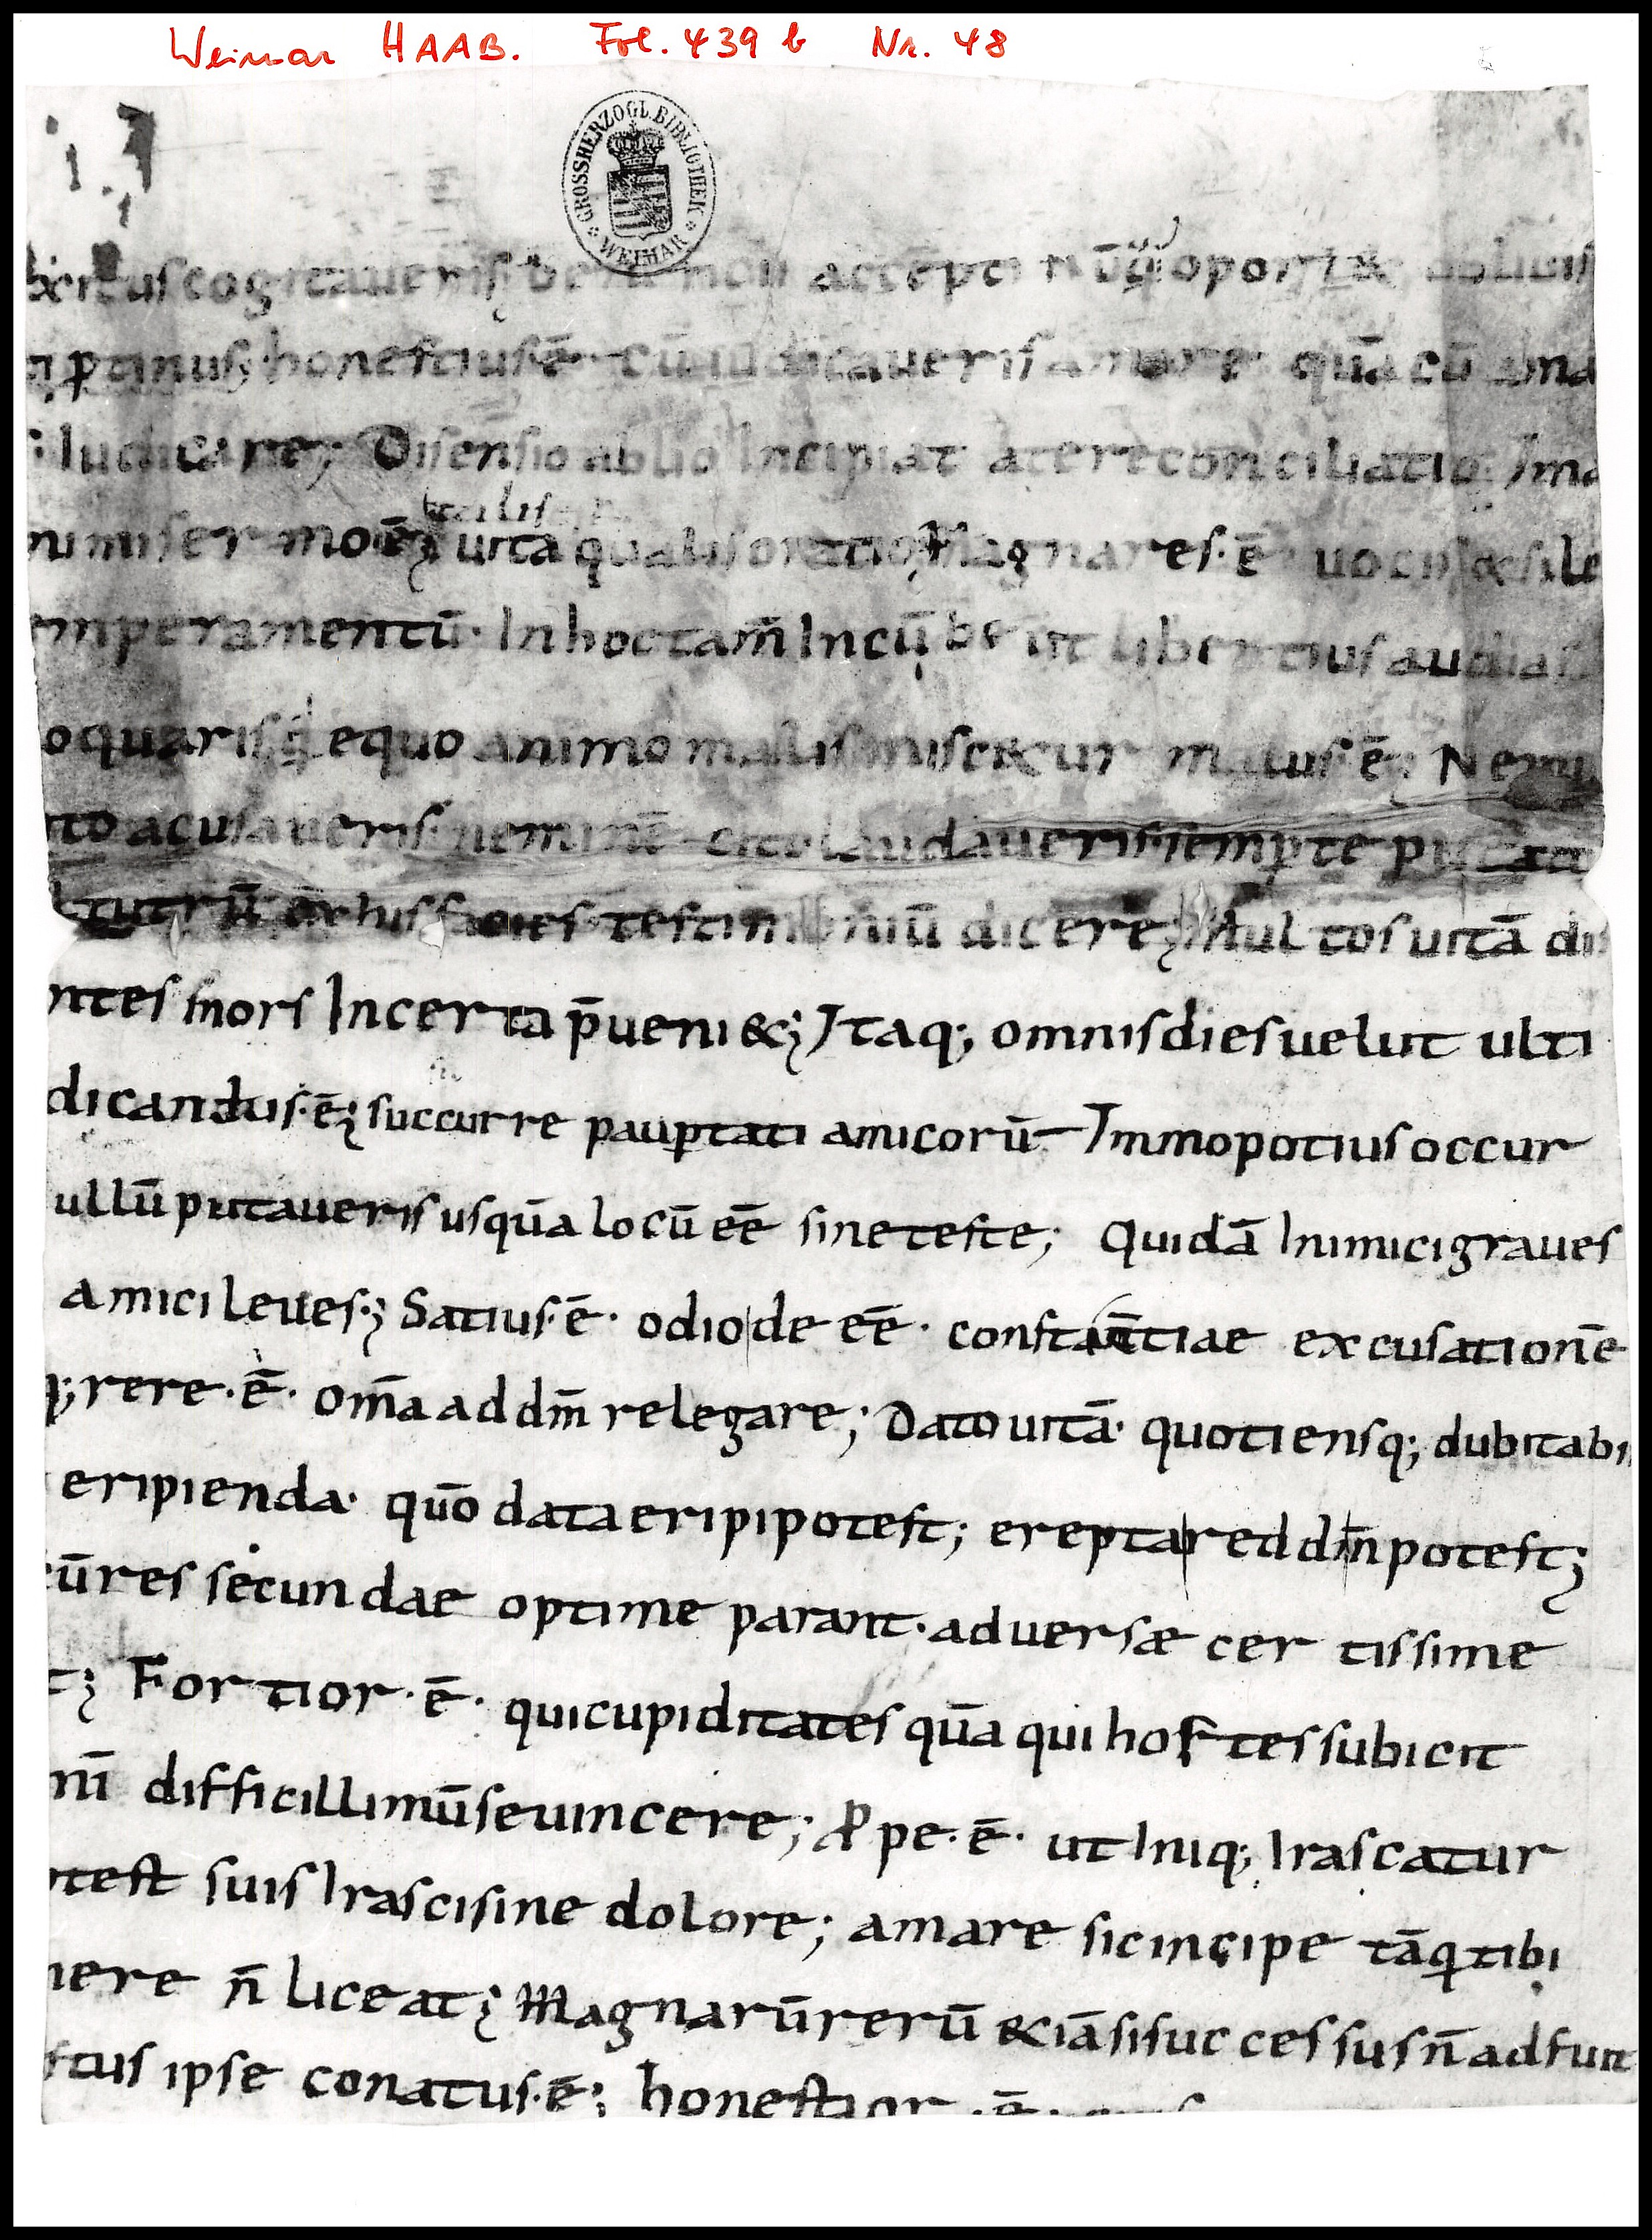 Weimar HAAB. Fol. 439 b Nr. 48
GROSSHERZOGL. BIBLIOTHEK WEIMAR
cogitaueris accepti oport&
ꝓtinus; honestius·ē· cū iudicaueris amare quā cū ama
Iudicare; Disensio ab lio Incipiat a te reconciliatio Ima
talis
nimi sermo ē; uita qualis oratio; Magna res·ē· uocis & sile
mperamentū· In hoc tam̄ Incūbe ut libentius audias
oquaris; equo animo malis misc&ur malus·ē; Nemi
to acusaueris· neminē cito laudaueris semꝑ te putato
his facies testimoniū dicere; Multos uitā di
ntes mors Incerta p̄ueni&; Itaq; omnis dies uelut ulti
dicandus·ē; succurre pauꝑtati amicorū Immo potius occur
ullū putaueris usquā locū eē sine teste; Quidā Inimici graues
amici leues·; Satius·ē· odio de eē· constantiae excusationē
q;rere·ē· om̄a ad dm̄ relegare; Dato uitā· quotiensq; dubitabi
eripienda· quō data eripi potest; erepta reddi n̄ potest;
ūres secundae optime parant· aduersæ certissime
t; Fortior·ē· qui cupiditates quā qui hostes subicit
nī difficillimū se uincere; Ꝓpe·ē· ut Iniq; Irascatur
otest suis Irasci sine dolore; amare sic incipe tāꝗ tibi
nere n̄ liceat; Magnarū rerū &iā si successus n̄ adfuit
stus ipse conatus·ē; honestior·ē·